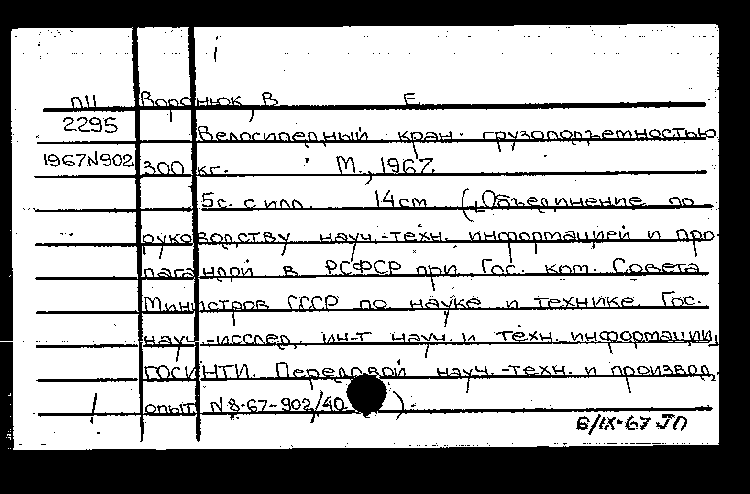 П11 Воронюк, В. Е.
2295 Велосипедный кран грузоподъемностью
1967N902 300 кг. М., 1967.
5с. с илл. 14см (Объединение по
руководству науч.-техн. информацией и про-
пагандой в РСФСР при Гос. ком. Совета
Министров СССР по науке и технике. Гос.
науч.-исслед. ин-т науч. и техн. информации,
ГОСИНТИ. Передовой науч.-техн. и производ.
опыт N 8-67-902/40 ).
6/IX-67 ЛП